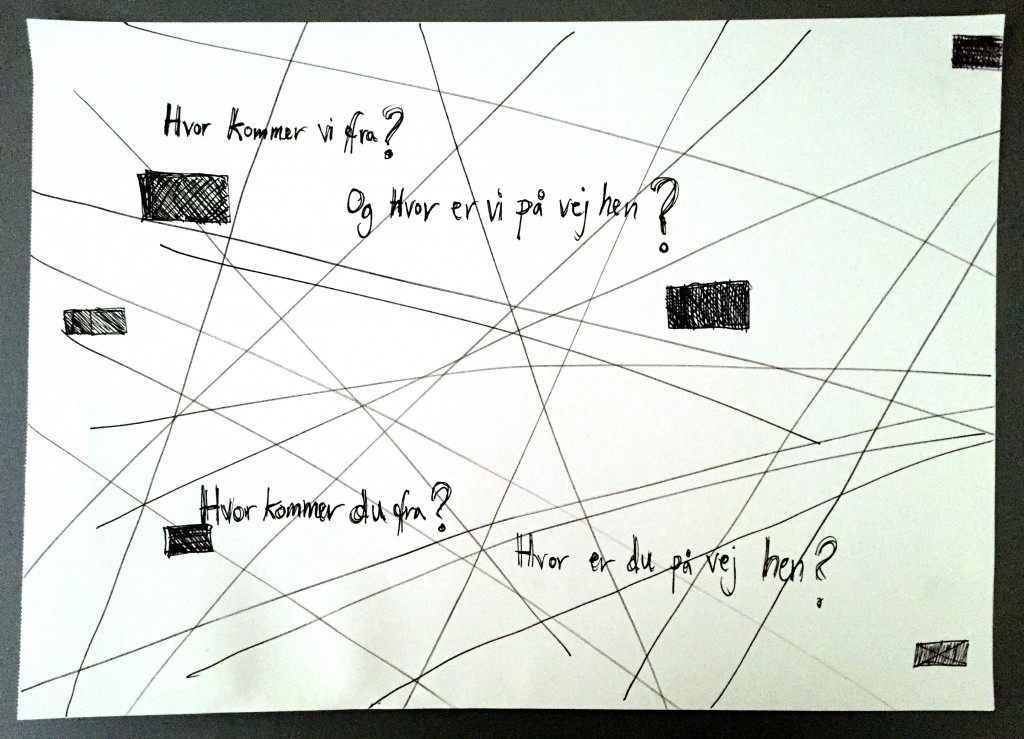 Hvor kommer vi fra?
Og Hvor er vi på vej hen?
Hvor kommer du fra?
Hvor er du på vej hen?